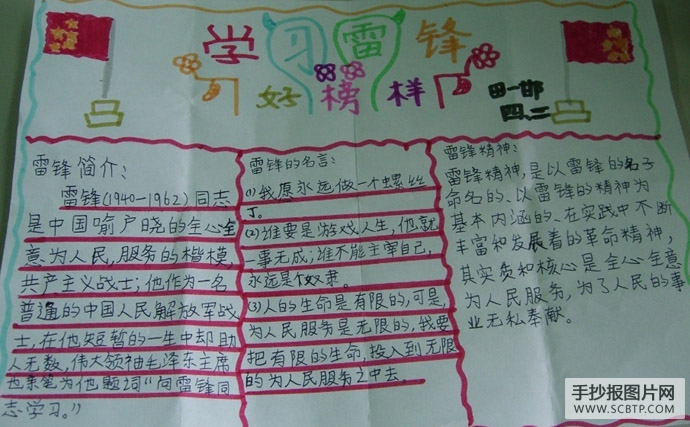 学习雷锋
好榜样
田一邯
四、二
雷锋简介：
雷锋(1940-1962)同志
是中国喻户晓的全心全
意为人民，服务的楷模，
共产主义战士；他作为一名
普通的中国人民解放军战
士，在他短暂的一生中却助
人无数，伟大领袖毛泽东主席
也亲笔为他题词“向雷锋同
志学习。”
雷锋的名言：
(1)我愿永远做一个螺丝
丁。
(2)谁要是游戏人生，他就
一事无成；谁不能主宰自己，
永远是个奴隶。
(3)人的生命是有限的，可是，
为人民服务是无限的，我要
把有限的生命，投入到无限
的为人民服务之中去。
雷锋精神：
雷锋精神，是以雷锋的名子
命名的、以雷锋的精神为
基本内涵的、在实践中不断
丰富和发展着的革命精神，
其实质和核心是全心全意
为人民服务，为了人民的事
业无私奉献。
手抄报图片网
WWW.SCBTP.COM